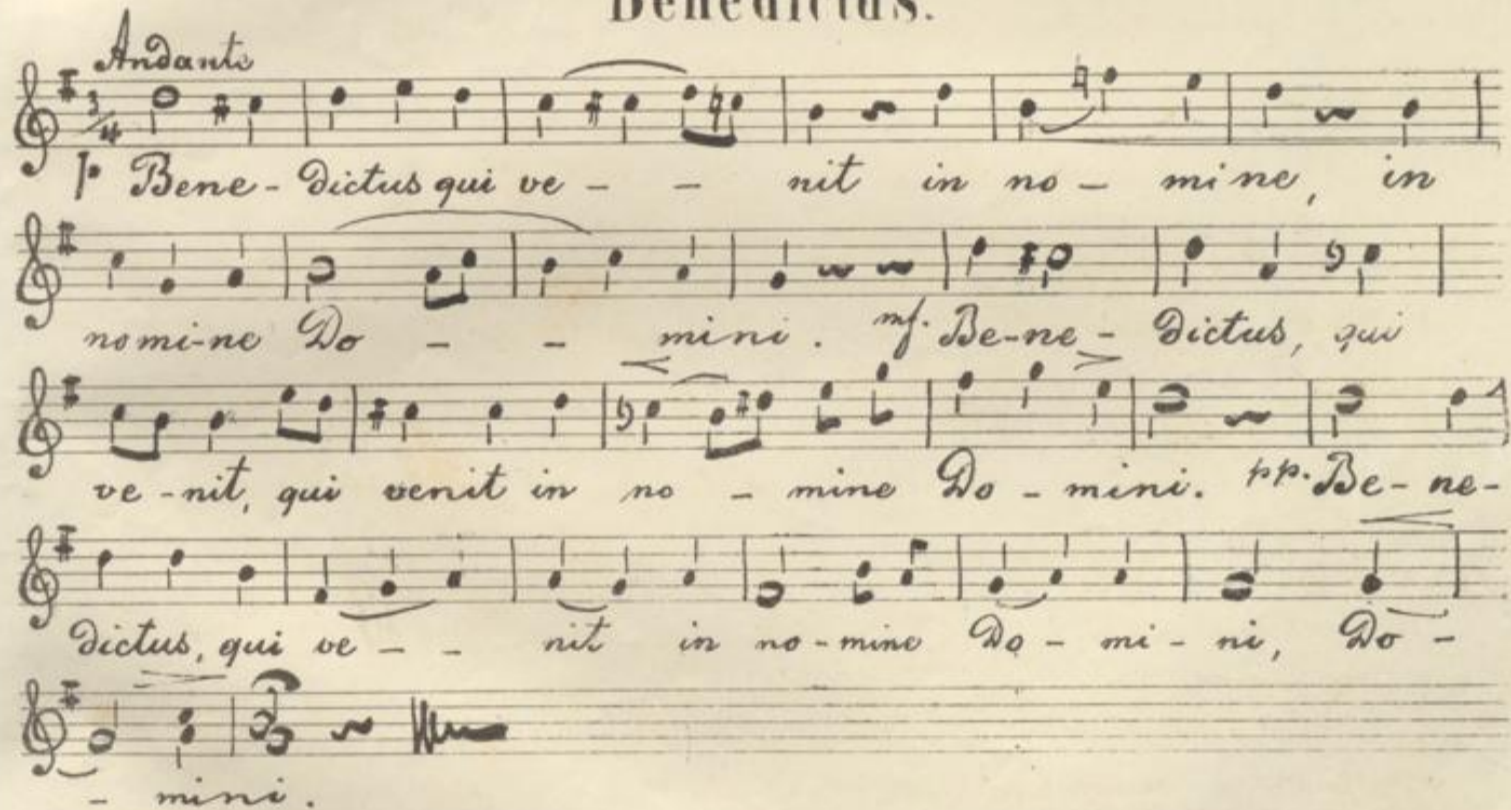 Benedictus.
Andante
3/4
p Bene - dictus qui ve - - nit in no - mine, in
nomi-ne Do - - mini. mf. Be-ne - dictus, qui
ve - nit, qui venit in no - mine Do - mini. pp. Be - ne-
dictus, qui ve - - nit in no - mine Do - mi - ni, Do -
- mini.